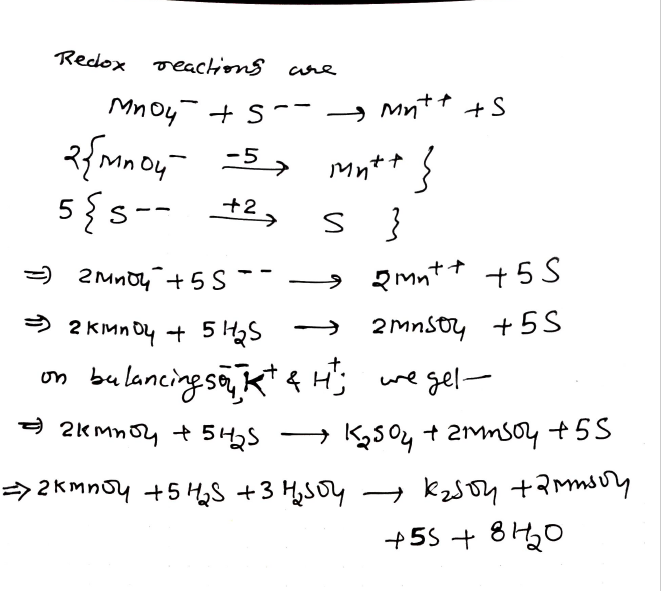 Redox reactions are
MnO4⁻ + S⁻⁻ → Mn⁺⁺ + S
2{MnO4⁻ -5→ Mn⁺⁺}
5{S⁻⁻ +2→ S}
⇒ 2MnO4⁻ + 5S⁻⁻ → 2Mn⁺⁺ + 5S
⇒ 2KMnO4 + 5H2S → 2MnSO4 + 5S
on balancing SO4⁻⁻, K⁺ & H⁺; we get—
⇒ 2KMnO4 + 5H2S → K2SO4 + 2MnSO4 + 5S
⇒ 2KMnO4 + 5H2S + 3H2SO4 → K2SO4 + 2MnSO4
+5S + 8H2O